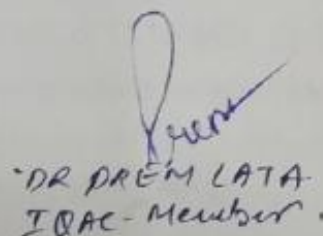 Prem
DR PREM LATA
IQAC-Member.